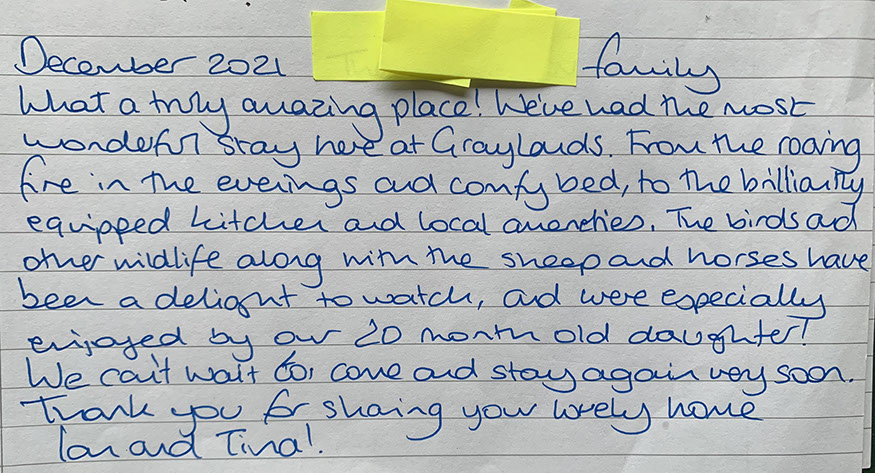 December 2021 family
What a truly amazing place! We've had the most
wonderful stay here at Graylands. From the roaring
fire in the evenings and comfy bed, to the brilliantly
equipped kitchen and local amenities. The birds and
other wildlife along with the sheep and horses have
been a delight to watch, and were especially
enjoyed by our 20 month old daughter!
We can't wait to come and stay again very soon.
Thank you for sharing your lovely home
Ian and Tina!.